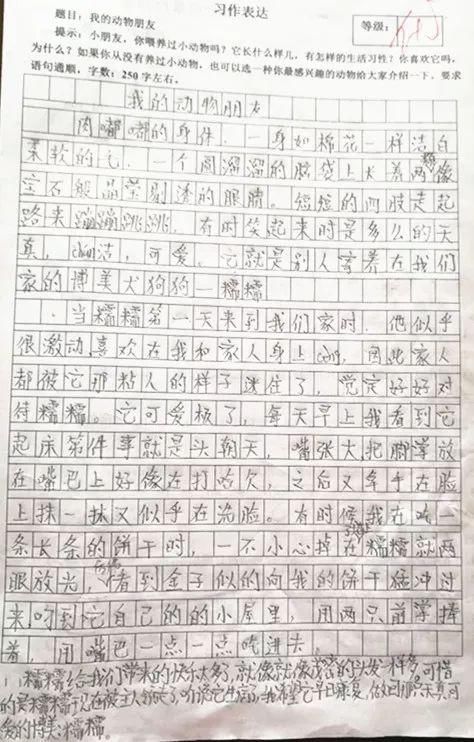 习作表达
题目：我的动物朋友
等级：
提示：小朋友，你喂养过小动物吗？它长什么样儿，有怎样的生活习性？你喜欢它吗，
为什么？如果你从没有养过小动物，也可以选一种你最感兴趣的动物给大家介绍一下，要求
语句通顺，字数：250字左右。
我的动物朋友
肉嘟嘟的身体，一身如棉花一样洁白
柔软的毛，一个圆溜溜的脑袋上长着两颗像
宝石般晶莹剔透的眼睛。短短的四肢走起
路来蹦蹦跳跳，有时笑起来时是多么的天
真，chún洁，可爱。它就是别人寄养在我们
家的博美犬狗狗—糯糯
当糯糯第一天来到我们家时，他似乎
很激动，喜欢在我和家人身上，因此家人
都被它那粘人的样子迷住了，觉定好好对
待糯糯。它可爱极了，每天早上我看到它
起床第件事就是头朝天，嘴张大，把脚掌放
在嘴巴上好像在打哈欠，之后又举手在脸
上抹一抹又似乎在洗脸。有时候我在吃一
条长条的饼干时，一不小心掉在糯糯就两
眼放光，看到金子似的向我的饼干猛冲过
来叼到它自己的的小屋里，用两只前掌捧
着，用嘴巴一点一点吃进去。
糯糯给我们带来的快乐太多了，就像就像茂密的头发一样多，可惜
的是糯糯于现在被主人领走了，听说它生病，我希望它早日康复，做回那只天真可
爱的博美：糯糯。